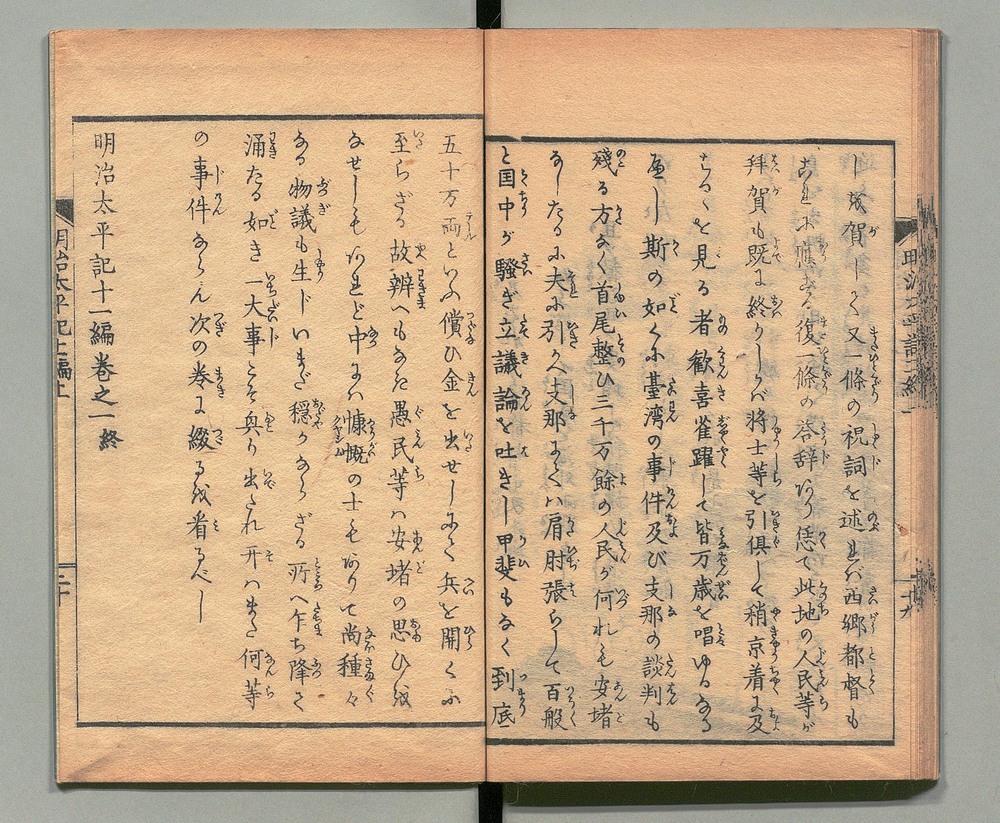 し成賀しく又一條の祝詞を述れバ西郷都督も
これに應ずる復一條の答辞あり恁て此地の人民等が
拜賀も既に終りしかバ将士等を引倶して稍京着に及
ちるゝを見る者歓喜雀躍して皆万歳を唱ゆるなる
べし斯の如くに臺湾の事件及び支那の談判も
殘る方なく首尾整ひ三千万餘の人民が何れも安堵
なしたるに夫に引かへ支那にてハ肩肘張らして百般
と国中が騒ぎ立議論を吐きし甲斐もなく到底
五十万両といふ償ひ金を出せしにて兵を開くに
至らざる故辨へもなき愚民等ハ安堵の思ひを
なせしもあれど中にハ慷慨の士もありて尚種々
なる物議も生じいまだ穏かならざる所へ乍ち降て
涌たる如き一大事こそ起り出たれ开ハまた何等
の事件ならん次の巻に綴るを看るべし
明治太平記十一編巻之一終
明治太平記十一編上
二十